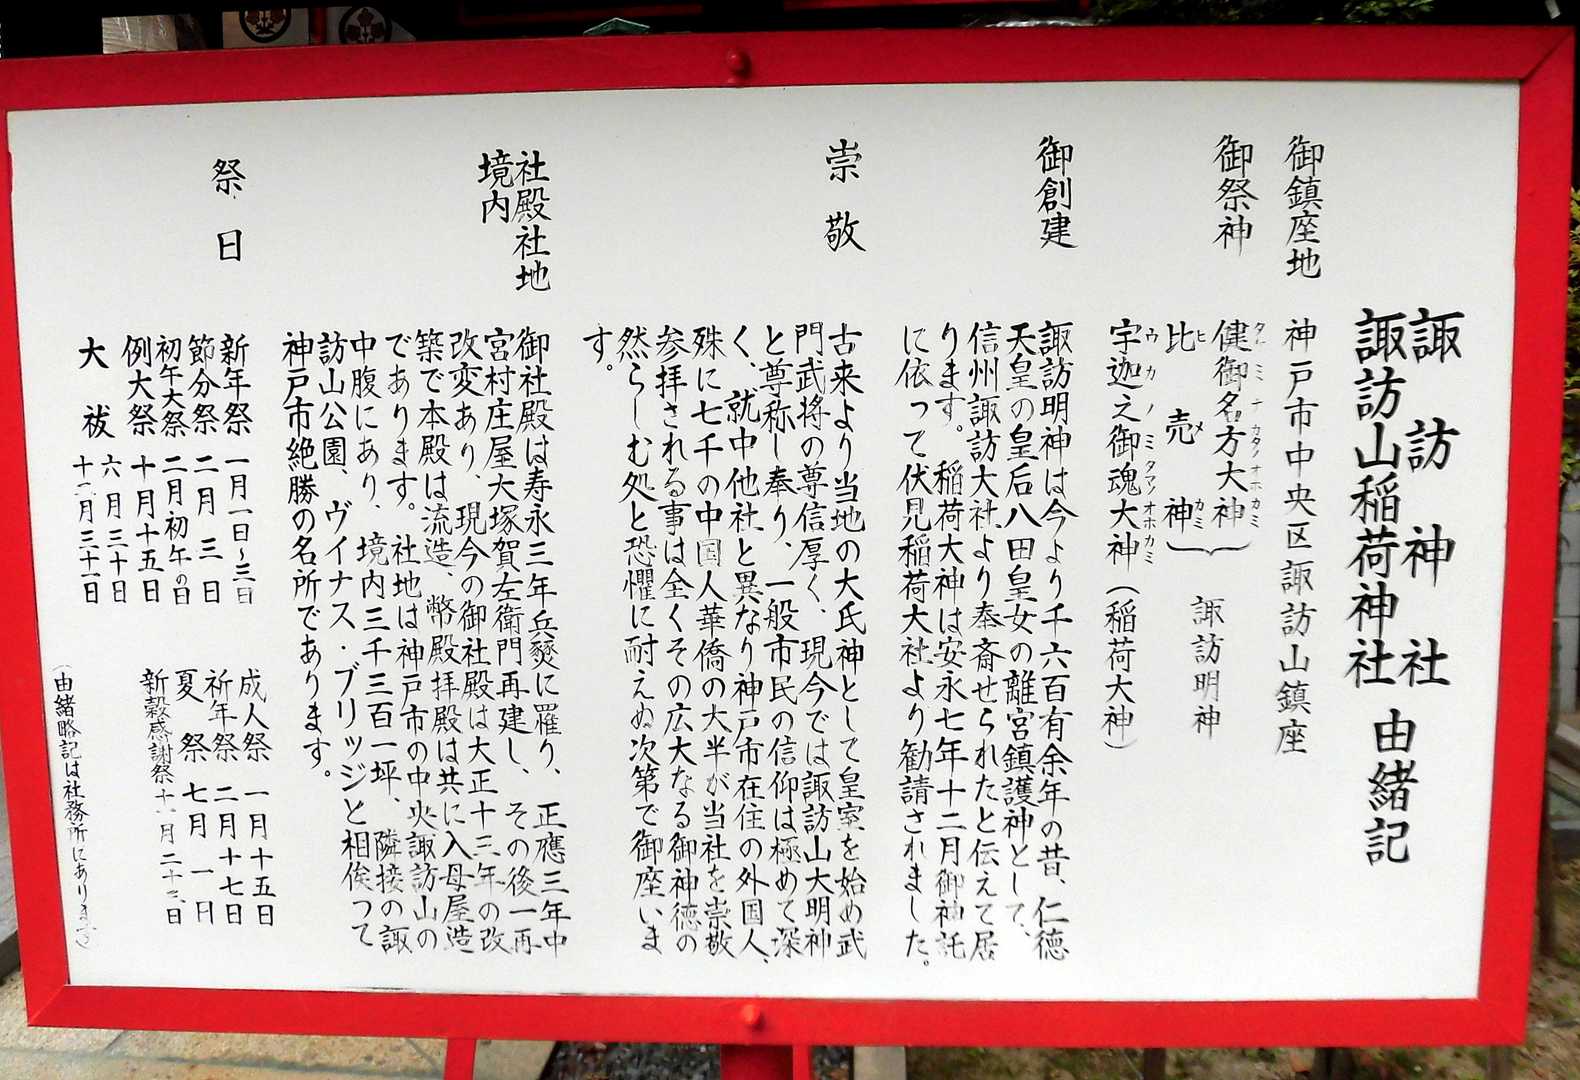 諏訪神社
諏訪山稲荷神社 由緒記
御鎮座地 神戸市中央区諏訪山鎮座
御祭神 健御名方大神
比売神
諏訪明神
宇迦之御魂大神（稲荷大神）
御創建 諏訪明神は今より千六百有余年の昔、仁徳
天皇の皇后八田皇女の離宮鎮護神として、
信州諏訪大社より奉斎せられたと伝えて居
ります。稲荷大神は安永七年十二月御神託
に依って伏見稲荷大社より勧請されました。
崇敬 古来より当地の大氏神として皇室を始め武
門武将の尊信厚く、現今では諏訪山大明神
と尊称し奉り、一般市民の信仰は極めて深
く、就中他社と異なり神戸市在住の外国人、
殊に七千の中国人華僑の大半が当社を崇敬
参拝される事は全くその広大なる御神徳の
然らしむ処と恐懼に耐えぬ次第で御座いま
す。
社殿社地
境内
御社殿は寿永三年兵燹に罹り、正應三年中
宮村庄屋大塚賀左衛門再建し、その後一再
改変あり、現今の御社殿は大正十三年の改
築で本殿は流造、幣殿拝殿は共に入母屋造
であります。社地は神戸市の中央諏訪山の
中腹にあり、境内三千三百一坪、隣接の諏
訪山公園、ヴィナス・ブリッジと相俟って
神戸市絶勝の名所であります。
祭日
新年祭 一月一日～三日
節分祭 二月三日
初午大祭 二月初午の日
例大祭 十月十五日
六月三十日
大祓 十二月三十一日
成人祭 一月十五日
祈年祭 二月十七日
夏祭 七月一日
新穀感謝祭 十一月二十三日
（由緒略記は社務所にあります）